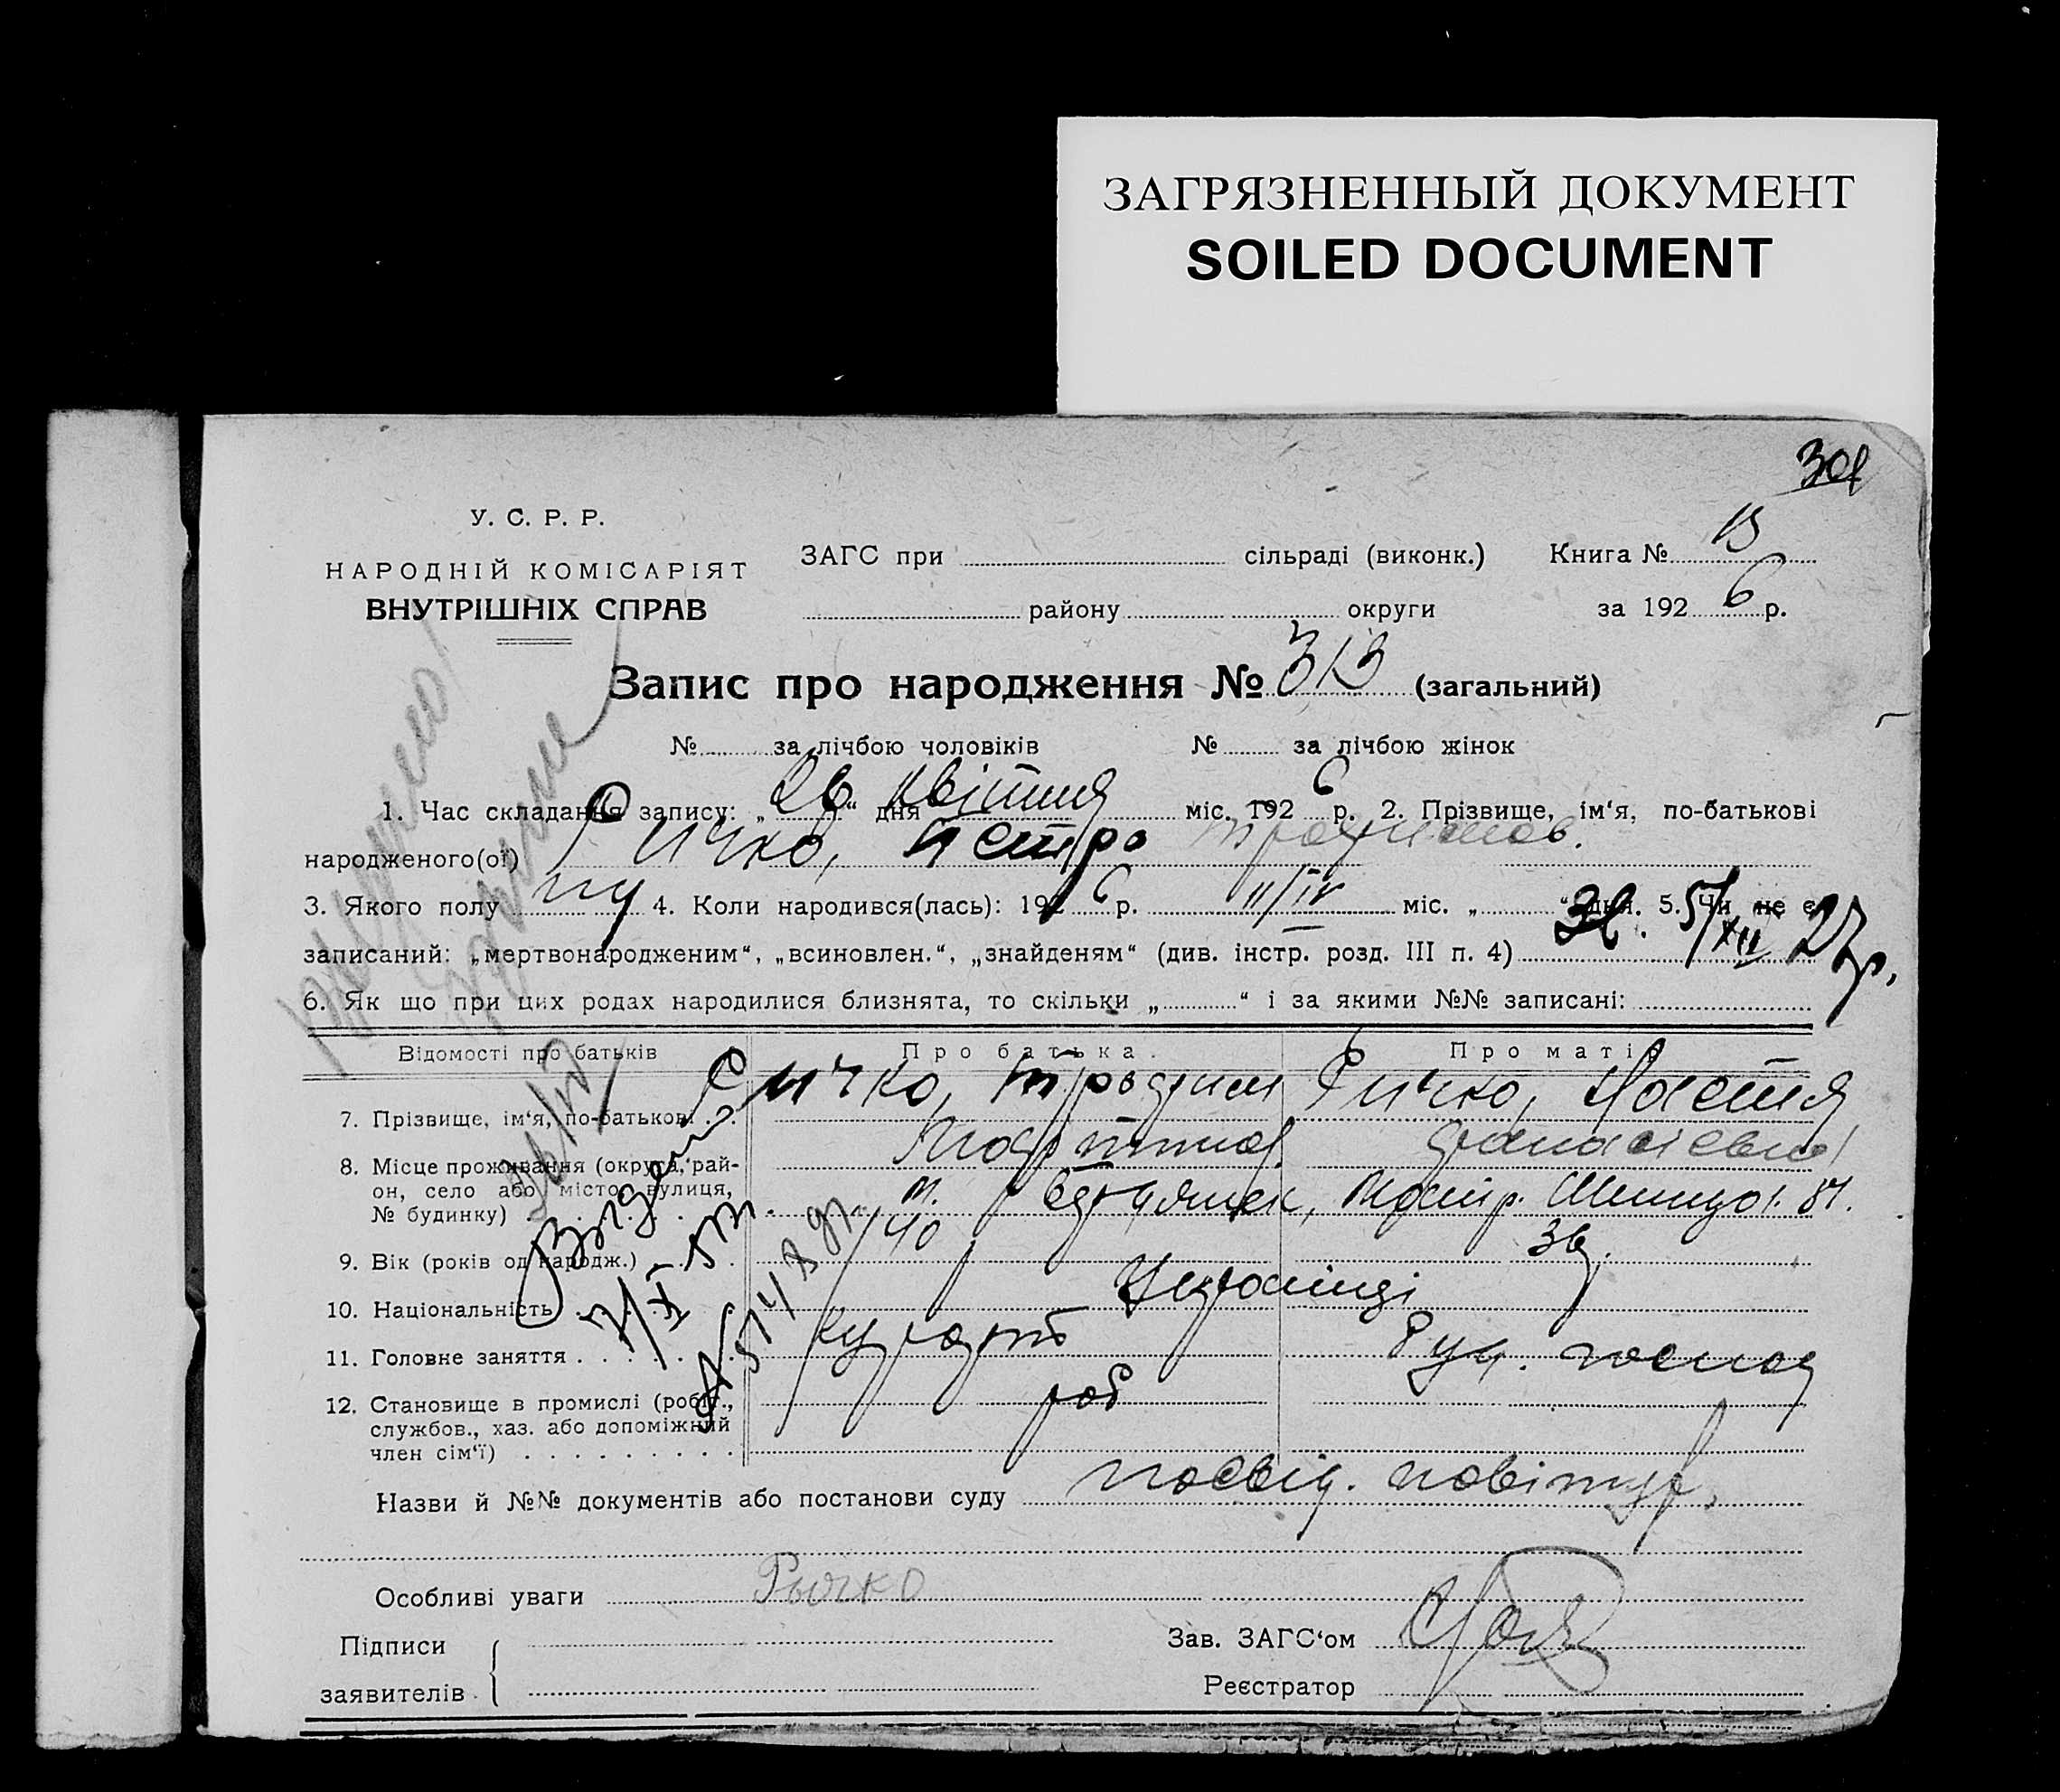 ЗАГРЯЗНЕННЫЙ ДОКУМЕНТ
SOILED DOCUMENT
У. С. Р. Р.
НАРОДНІЙ КОМІСАРІЯТ
ВНУТРІШНІХ СПРАВ
ЗАГС при сільраді (виконк.) Книга №
району округи за 192 6 р.
Запис про народження № 313 (загальний)
№ за лічбою чоловіків № за лічбою жінок
1. Час складання запису: „26“ дня квітня міс. 192 6 р. 2. Прізвище, ім‘я, по-батькові
народженого(ої) Ричко, Петро Трофимов.
3. Якого полу 4. Коли народився(лась): 192 6 р. 11/IV міс. „ “ дня. 5. Чи не є
записаний: „мертвонародженим“, „всиновлен.“, „знайденям“ (див. інстр. розд. III п. 4) 5/XII 27р.
6. Як що при цих родах народилися близнята, то скільки „ “ і за якими №№ записані:
Відомості про батьків Про батька. Про матір
7. Прізвище, ім‘я, по-батькові . . Ричко, Трофим Ричко, Настя
8. Місце проживання (округа, рай-
он, село або місто, вулиця,
№ будинку) . м.
9. Вік (років од народж.) 40 36
10. Національність Українці
11. Головне заняття . . . . . . .
12. Становище в промислі (робіт., роб
службов., хаз. або допоміжний
член сім‘ї) . . . . . . . . .
Назви й №№ документів або постанови суду посвід. повітух.
Особливі уваги Рычко
Підписи
заявителів
Зав. ЗАГС‘ом
Реєстратор